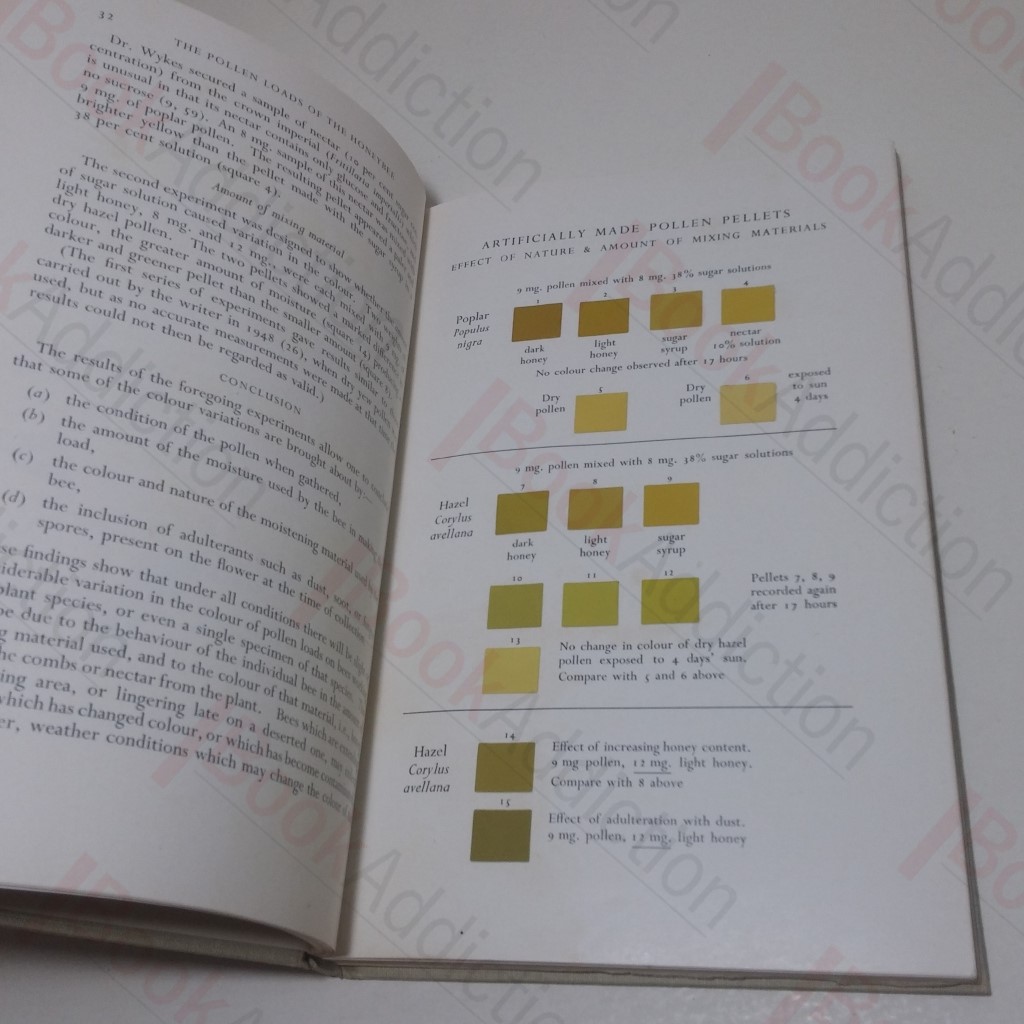 32
THE POLLEN LOADS OF THE HONEYBEE
Dr. Wykes secured a sample of nectar (10 per cent
centration) from the crown imperial (Fritillaria imperialis
is unusual in that its nectar contains only glucose and
no sucrose (9, 59). An 8 mg. sample of this nectar was
9 mg. of poplar pollen. The resulting pellet appeared
brighter yellow than the pellet made with the sugar
38 per cent solution (square 4).
Amount of mixing material
The second experiment was designed to show whether the
of sugar solution caused variation in the colour. Two
light honey, 8 mg. and 12 mg., were each mixed with 9
dry hazel pollen. The two pellets showed a marked
colour, the greater amount of moisture (square 14)
darker and greener pellet than the smaller amount
(The first series of experiments gave results similar
carried out by the writer in 1948 (26), when dry
used, but as no accurate measurements were made at that
results could not then be regarded as valid.)
CONCLUSION
The results of the foregoing experiments allow one to
that some of the colour variations are brought about by:—
(a) the condition of the pollen when gathered,
(b) the amount of the moisture used by the bee in making
load,
(c) the colour and nature of the moistening material used
bee,
(d) the inclusion of adulterants such as dust, soot, or
spores, present on the flower at the time of collection.
se findings show that under all conditions there will be
iderable variation in the colour of pollen loads
plant species, or even a single specimen of that species.
be due to the behaviour of the individual bee in the
g material used, and to the colour of that material, i.e.,
he combs or nectar from the plant. Bees which are
ing area, or lingering late on a deserted one, may
which has changed colour, or which has become contaminated
er, weather conditions which may change the colour of
ARTIFICIALLY MADE POLLEN PELLETS
EFFECT OF NATURE & AMOUNT OF MIXING MATERIALS
9 mg. pollen mixed with 8 mg. 38% sugar solutions
1 2 3 4
Poplar
Populus
nigra
dark honey
light honey
sugar syrup
nectar 10% solution
No colour change observed after 17 hours
5 6
Dry pollen
Dry pollen
exposed to sun 4 days
9 mg. pollen mixed with 8 mg. 38% sugar solutions
7 8 9
Hazel
Corylus
avellana
dark honey
light honey
sugar syrup
10 11 12
Pellets 7, 8, 9
recorded again
after 17 hours
13
No change in colour of dry hazel
pollen exposed to 4 days' sun.
Compare with 5 and 6 above
14
Hazel
Corylus
avellana
Effect of increasing honey content.
9 mg pollen, 12 mg. light honey.
Compare with 8 above
15
Effect of adulteration with dust.
9 mg. pollen, 12 mg. light honey
BookAddiction